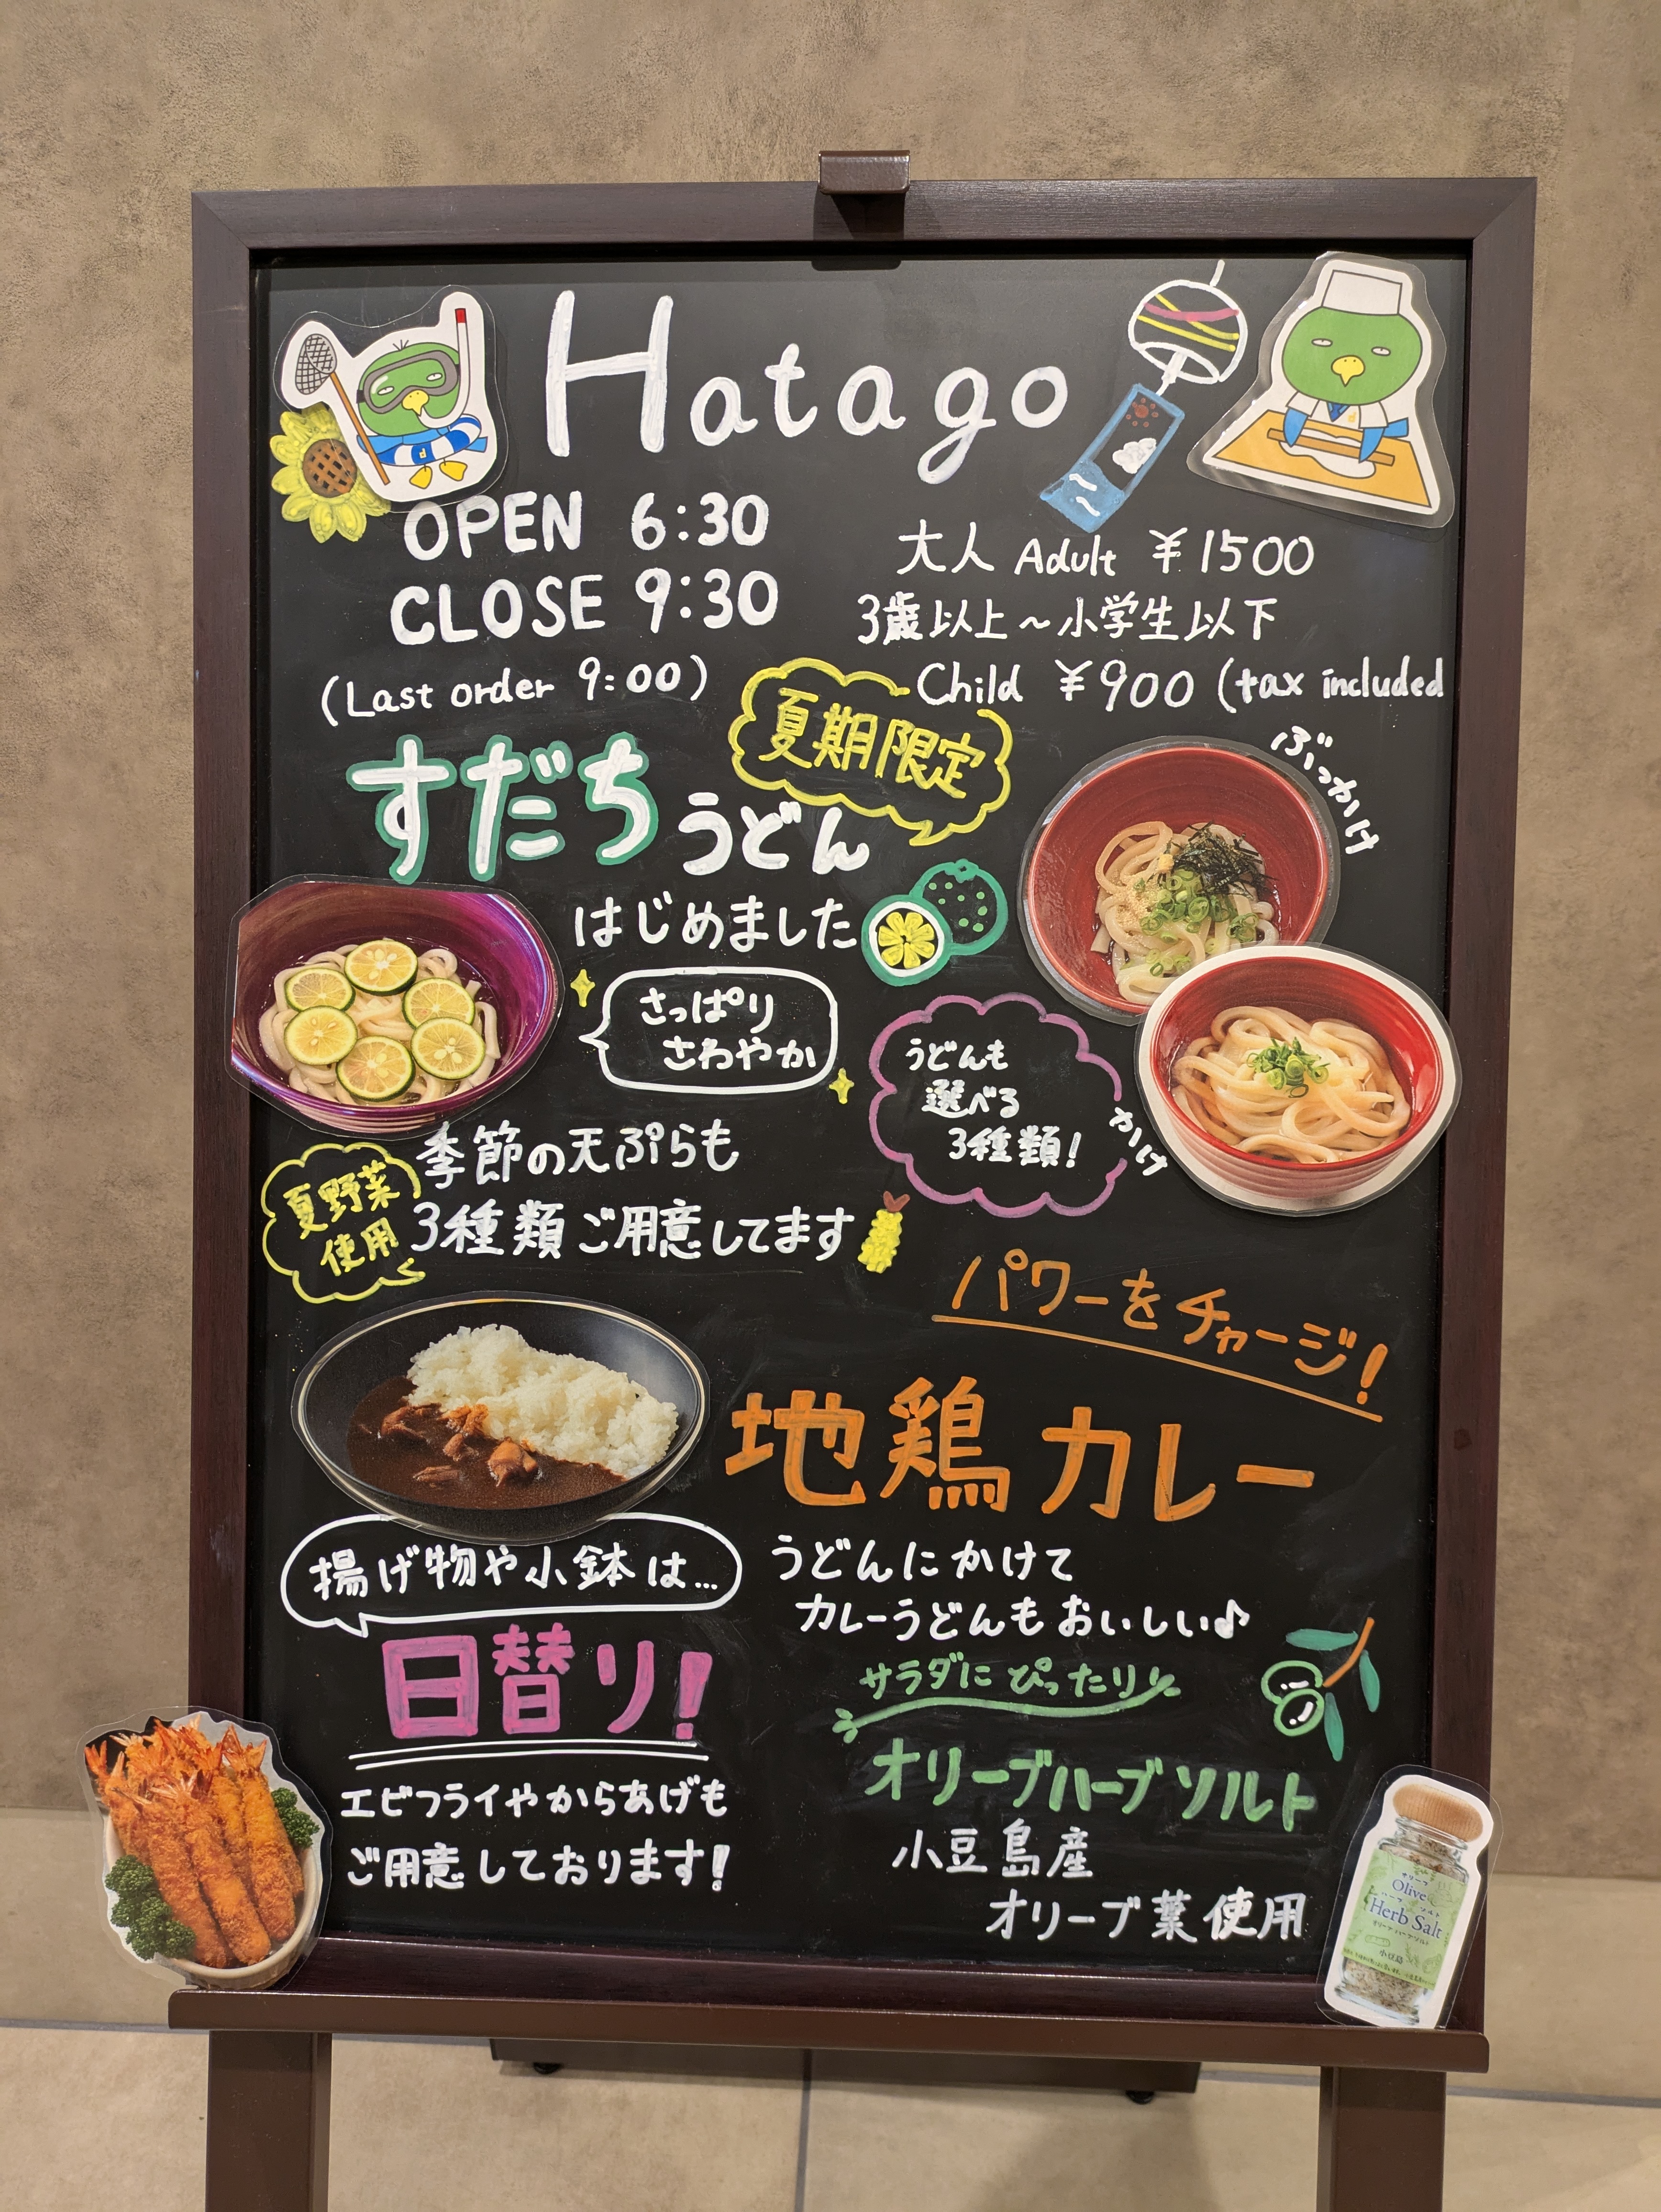 Hatago
OPEN 6:30
CLOSE 9:30
(Last order 9:00)
大人 Adult ¥1500
3歳以上~小学生以下
Child ¥900 (tax included
夏期限定
すだちうどん
はじめました
さっぱり
さわやか
ぶっかけ
うどんも
選べる
3種類!
かけ
夏野菜
使用
季節の天ぷらも
3種類ご用意してます
パワーをチャージ!
地鶏カレー
うどんにかけて
カレーうどんもおいしい♪
揚げ物や小鉢は…
日替り!
エビフライやからあげも
ご用意しております!
サラダにぴったり
オリーブハーブソルト
小豆島産
オリーブ葉使用
オリーブ
Olive
ハーブ ソルト
Herb Salt
オリーブハーブソルト
小豆島